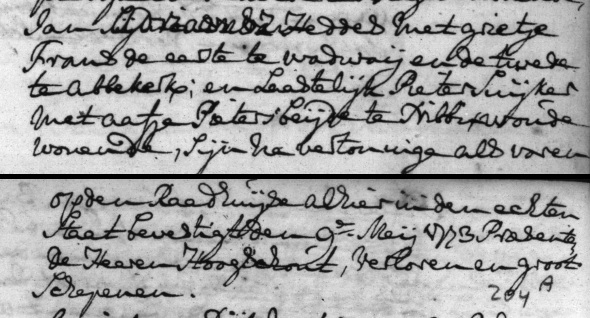 Jan Adriaansz Heddes met grietje
Frans de eerste te wadwaij en de twede
te abbekerk; en Laastelijk Pieter Snijker
met aafje Pieters beijde te Nibbixwoude
wonende, Sijn na vertoninge als voren
op den Raadhuijse alhier in den echten
Staet bevestigt den 9e Meij 1773 Præsentes
de Heeren Hoogschout, Verloren en groot
Schepenen.
204 A